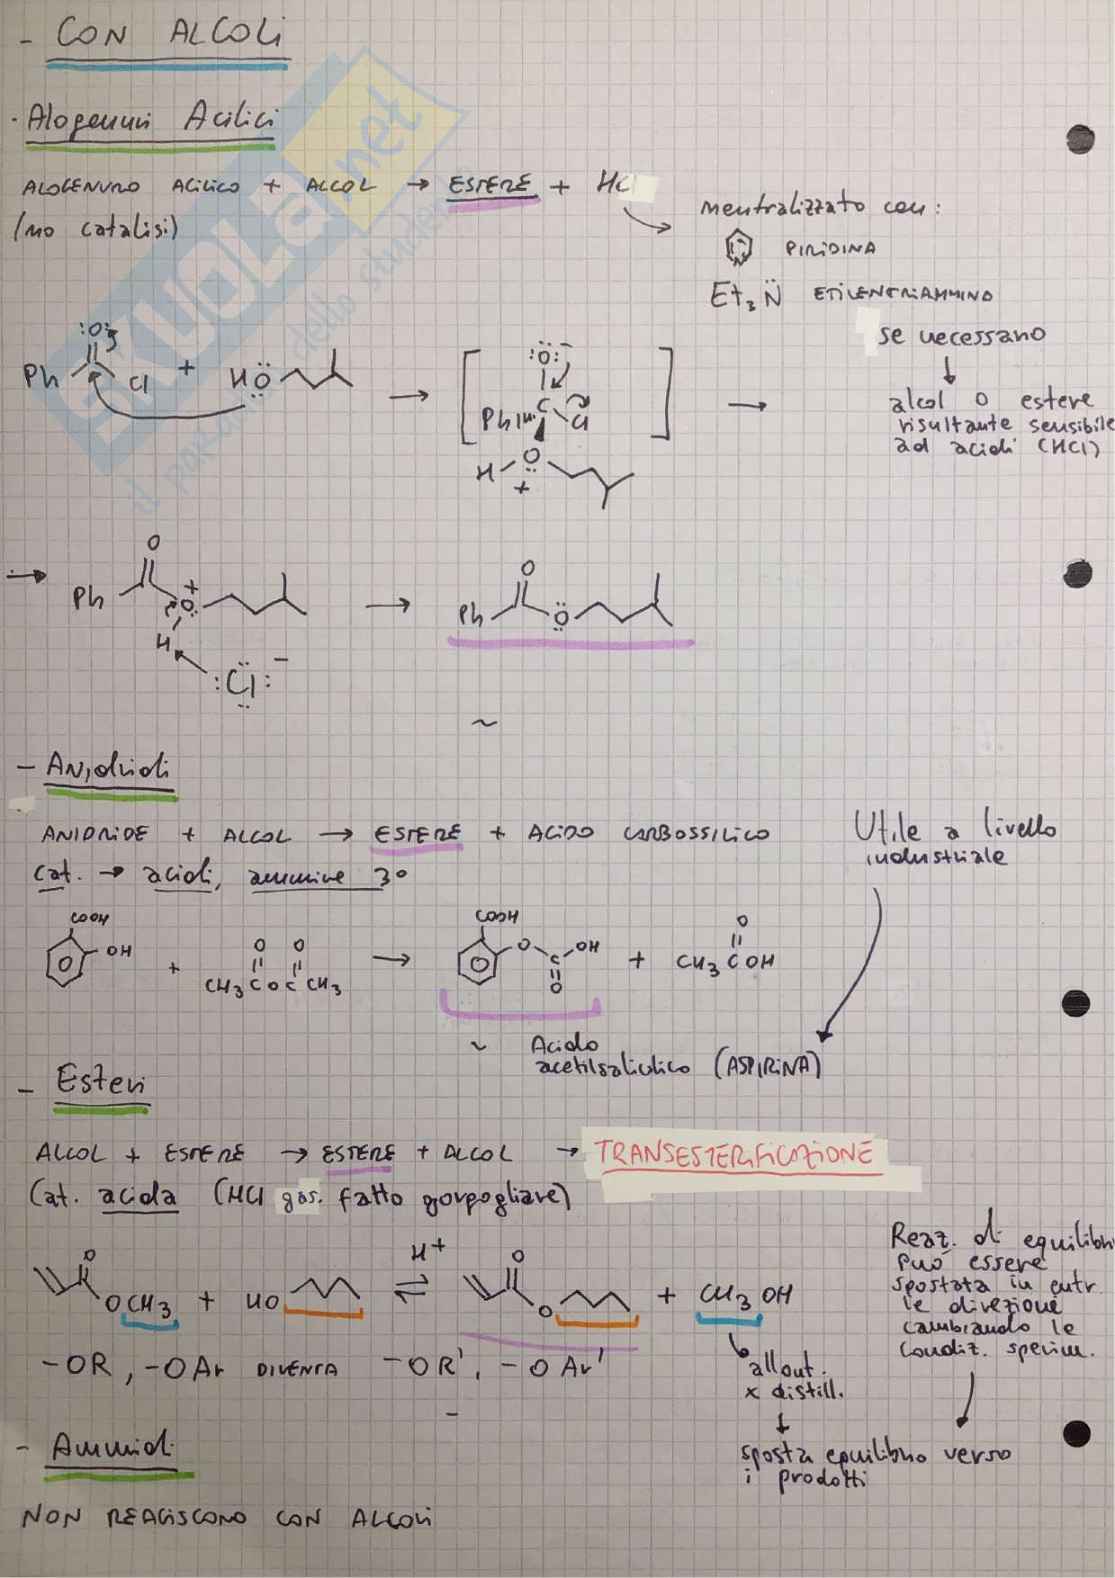 - CON ALCOLI
· Alogenuri Acilici
ALOGENURO ACILICO + ALCOL → ESTERE + HCl
(no catalisi)
neutralizzato con:
N PIRIDINA
Et3N̈ ETILENTRIAMMINA
se necessario
↓
alcol o estere
risultante sensibile
ad acidi (HCl)
:O:
Ph Cl + HÖ →
[ :Ö:⁻
Ph C Cl ] →
H - O
+
→ O
Ph O +
H
:Cl: ⁻
→ O
Ph Ö
~
- Anidridi
ANIDRIDE + ALCOL → ESTERE + ACIDO CARBOSSILICO
Cat. → acidi, ammine 3°
Utile a livello
industriale
COOH
OH + CH3 C O C CH3
O O
→ COOH
O C OH
O
+ CH3 C OH
O
~ Acido
acetilsalicilico (ASPIRINA)
- Esteri
ALCOL + ESTERE → ESTERE + ALCOL → TRANSESTERIFICAZIONE
Cat. acida (HCl gas. fatto gorgogliare)
O
OCH3 + HO
H+
⇌
O
O + CH3 OH
Reaz. di equilibri
può essere
spostata in entr.
le direzione
cambiando le
condiz. sperim.
- OR, - OAr DIVENTA - OR', - OAr'
allont.
x distill.
↓
sposta equilibrio verso
i prodotti
- Ammidi
NON REAGISCONO CON ALCOLI
SKUOLA.net